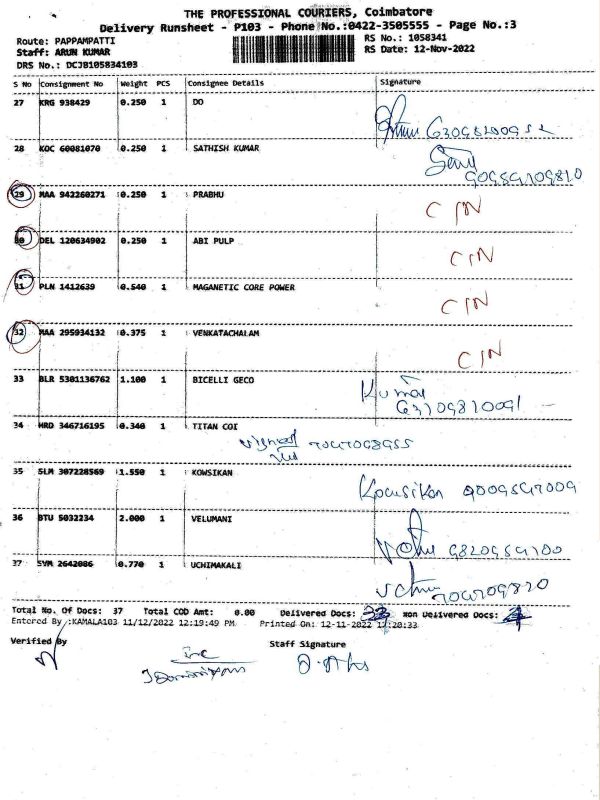 THE PROFESSIONAL COURIERS, Coimbatore
Delivery Runsheet - P103 - Phone No.:0422-3505555 - Page No.:3
Route: PAPPAMPATTI
RS No.: 1058341
Staff: ARUN KUMAR
RS Date: 12-Nov-2022
DRS No.: DCJB105834103
S No Consignment No Weight PCS Consignee Details Signature
27 KRG 938429 0.250 1 DO
28 KOC 60081070 0.250 1 SATHISH KUMAR
29 MAA 942260271 0.250 1 PRABHU C/N
30 DEL 120634902 0.250 1 ABI PULP C/N
31 PLN 1412639 0.540 1 MAGANETIC CORE POWER C/N
32 MAA 295934132 0.375 1 VENKATACHALAM C/N
33 BLR 5301136762 1.100 1 BICELLI GECO Kumar
34 HRD 346716195 0.340 1 TITAN COI
35 SLM 307228569 1.550 1 KOWSIKAN Kowsikan
36 BTU 5032234 2.000 1 VELUMANI
37 SVM 2642086 0.770 1 UCHIMAKALI
Total No. Of Docs: 37 Total COD Amt: 0.00 Delivered Docs: 33 Non Delivered Docs: 4
Entered By :KAMALA103 11/12/2022 12:19:49 PM Printed On: 12-11-2022 12:20:33
Verified By
Staff Signature